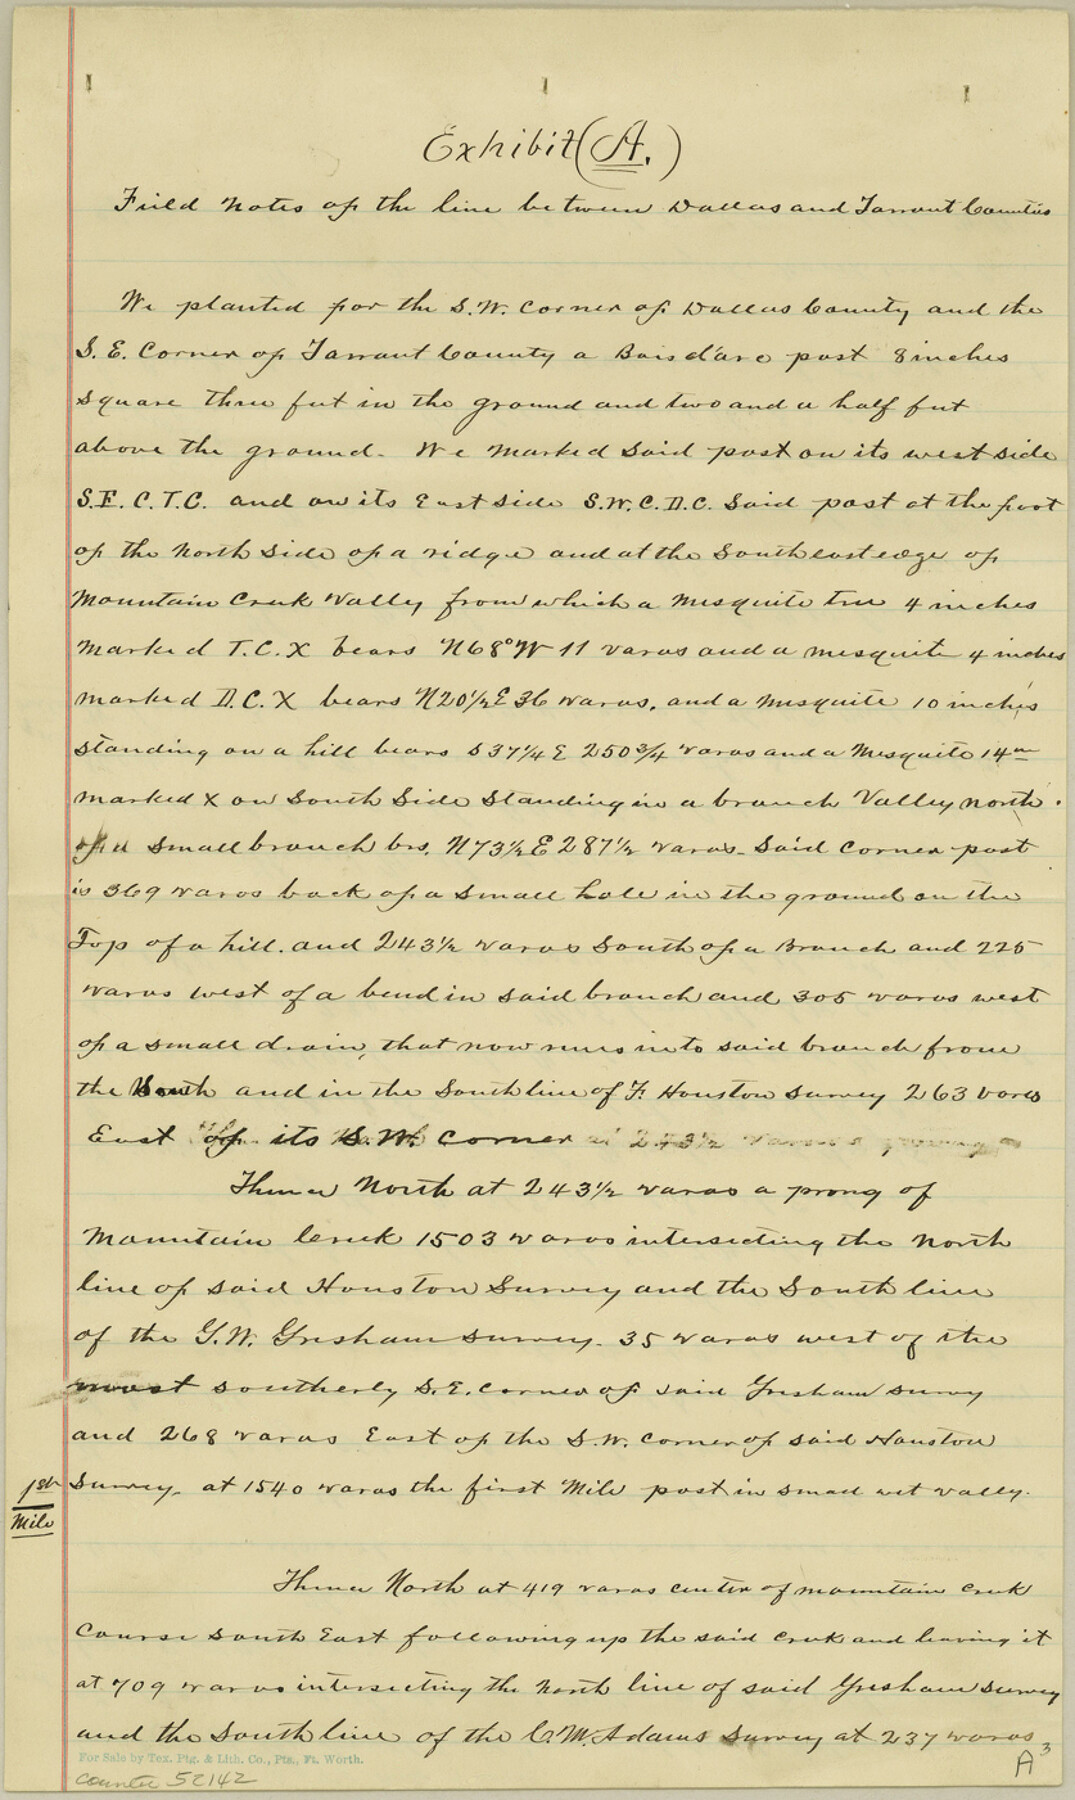 Exhibit (A.)
Field Notes of the line between Dallas and Tarrant Counties
We planted for the S.W. Corner of Dallas County and the
S.E. Corner of Tarrant County a Bois d'arc post 8 inches
square three feet in the ground and two and a half feet
above the ground. We marked said post on its west side
S.E.C.T.C. and on its East side S.W.C.D.C. Said post at the foot
of the North side of a ridge and at the South east edge of
Mountain Creek Vally from which a Mesquite tree 4 inches
marked T.C.X bears N68°W 11 varas and a mesquite 4 inches
marked D.C.X bears N20½E 36 varas, and a Mesquite 10 inches
standing on a hill bears S37¼E 250¾ varas and a Mesquite 14 in
marked X on South Side standing in a branch Valley north
of a small branch brs. N73½E 287½ varas. Said Corner post
is 369 varas back of a small hole in the ground on the
Top of a hill. and 243½ varas South of a Branch and 225
varas west of a bend in said branch and 305 varas west
of a small drain, that now runs into said branch from
the South and in the South line of F. Houston Survey 263 varas
East of its S.W. Corner
Thence North at 243½ varas a prong of
Mountain Creek 1503 varas intersecting the North
line of said Houston Survey and the South line
of the G.W. Grisham survey. 35 varas west of the
most southerly S.E. corner of said Grisham survy
and 268 varas East of the S.W. Corner of said Houston
1st Mile
Survey. at 1540 varas the first Mile post in small wet vally.
Thence North at 419 varas center of mountain creek
Course South East following up the said creek and leaving it
at 709 varas intersecting the North line of said Grisham survey
and the South line of the C.M. Adams Survey at 237 varas
For Sale by Tex. Ptg. & Lith. Co., Pts., Ft. Worth.
counter 52142
A
3